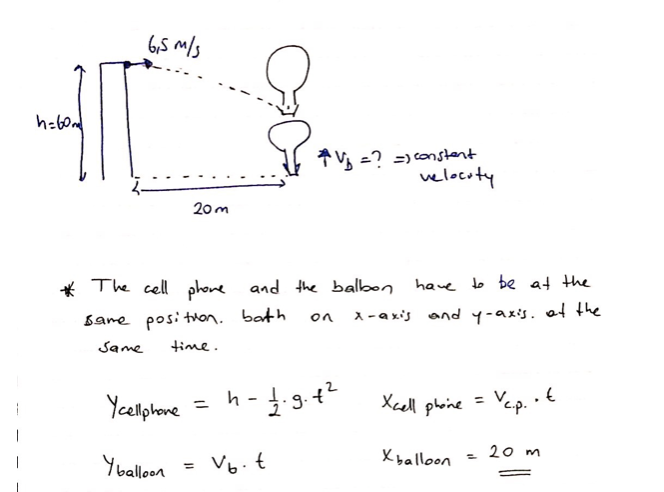 6,5 m/s
h=60m
↑ Vb = ? => constant
velocity
20 m
* The cell phone and the balbon have to be at the
same position. both on x-axis and y-axis. at the
same time.
Ycellphone = h - 1/2 . g . t²
Xcell phone = Vc.p. . t
Yballoon = Vb . t
Xballoon = 20 m